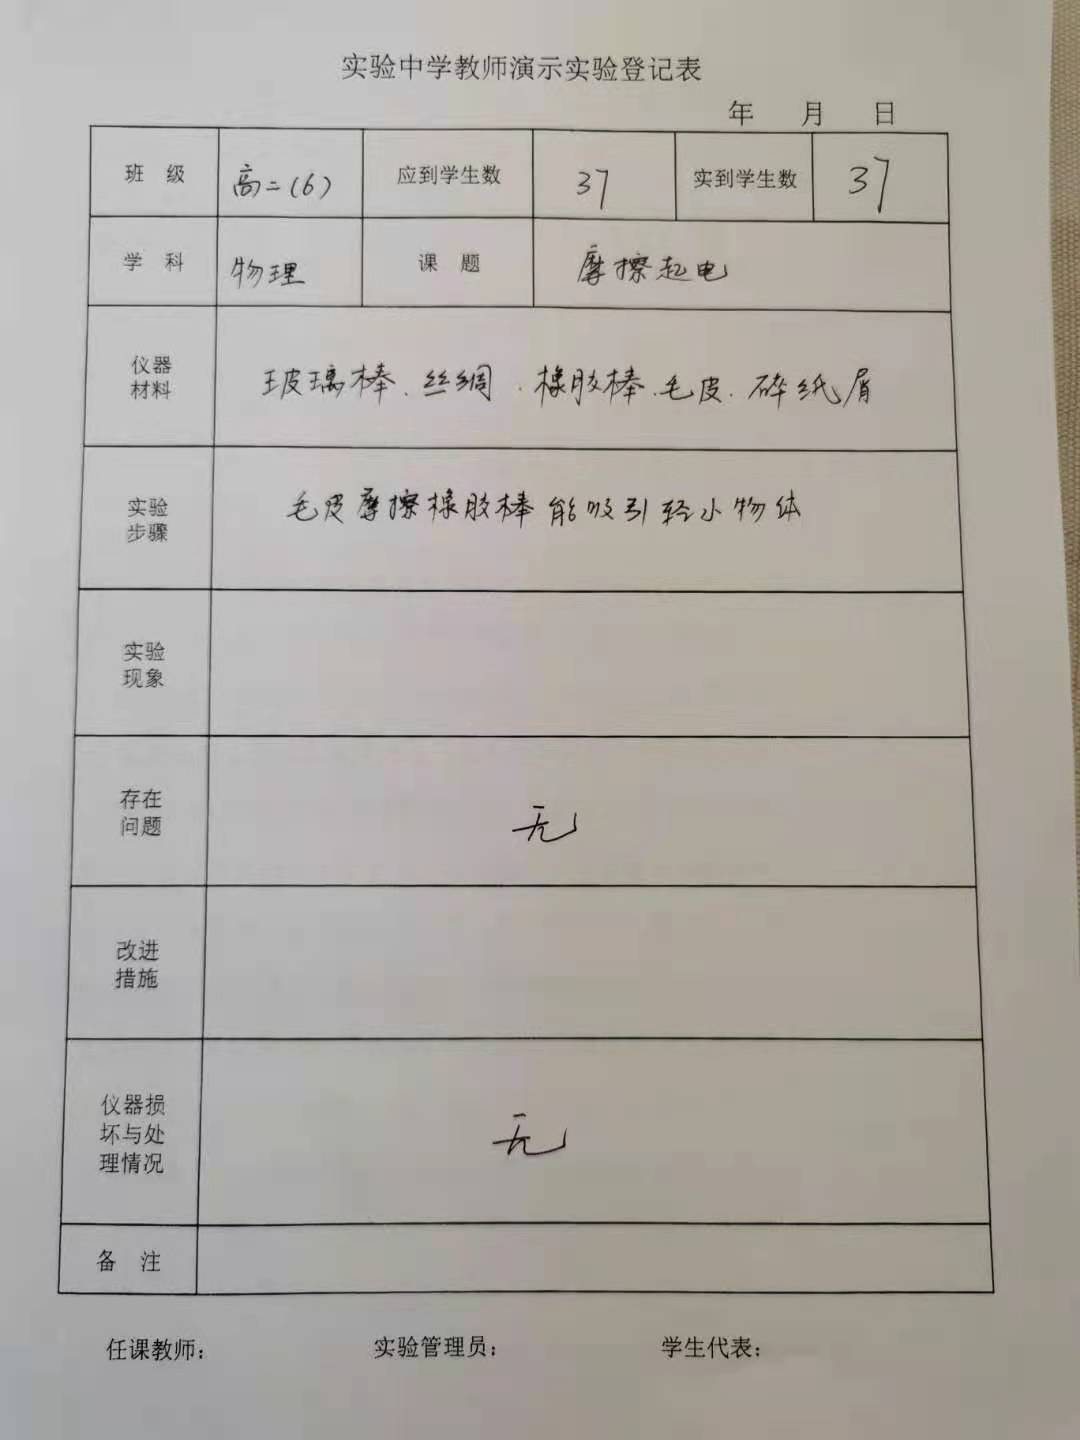 实验中学教师演示实验登记表
年 月 日
班 级 高二(6) 应到学生数 37 实到学生数 37
学 科 物理 课 题 摩擦起电
仪器
材料
玻璃棒、丝绸、橡胶棒、毛皮、碎纸屑
实验
步骤
毛皮摩擦橡胶棒能吸引轻小物体
实验
现象
存在
问题
无
改进
措施
仪器损
坏与处
理情况
无
备 注
任课教师: 实验管理员: 学生代表: